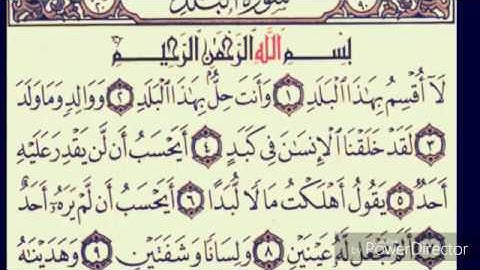 سورة البلد
بِسْمِ اللَّهِ الرَّحْمَٰنِ الرَّحِيمِ
لَا أُقْسِمُ بِهَٰذَا الْبَلَدِ ١ وَأَنتَ حِلٌّ بِهَٰذَا الْبَلَدِ ٢ وَوَالِدٍ وَمَا وَلَدَ
٣ لَقَدْ خَلَقْنَا الْإِنسَانَ فِي كَبَدٍ ٤ أَيَحْسَبُ أَن لَّن يَقْدِرَ عَلَيْهِ
أَحَدٌ ٥ يَقُولُ أَهْلَكْتُ مَالًا لُّبَدًا ٦ أَيَحْسَبُ أَن لَّمْ يَرَهُۥ أَحَدٌ
أَلَمْ نَجْعَل لَّهُۥ عَيْنَيْنِ ٨ وَلِسَانًا وَشَفَتَيْنِ ٩ وَهَدَيْنَاهُ
PowerDirector